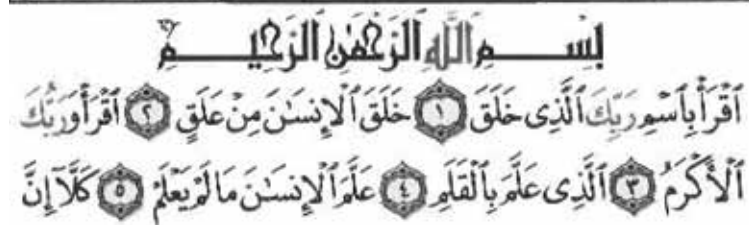 بِسْمِ ٱللَّهِ ٱلرَّحْمَٰنِ ٱلرَّحِيمِ
ٱقْرَأْ بِٱسْمِ رَبِّكَ ٱلَّذِى خَلَقَ ١ خَلَقَ ٱلْإِنسَٰنَ مِنْ عَلَقٍ ٢ ٱقْرَأْ وَرَبُّكَ
ٱلْأَكْرَمُ ٣ ٱلَّذِى عَلَّمَ بِٱلْقَلَمِ ٤ عَلَّمَ ٱلْإِنسَٰنَ مَا لَمْ يَعْلَمْ ٥ كَلَّآ إِنَّ